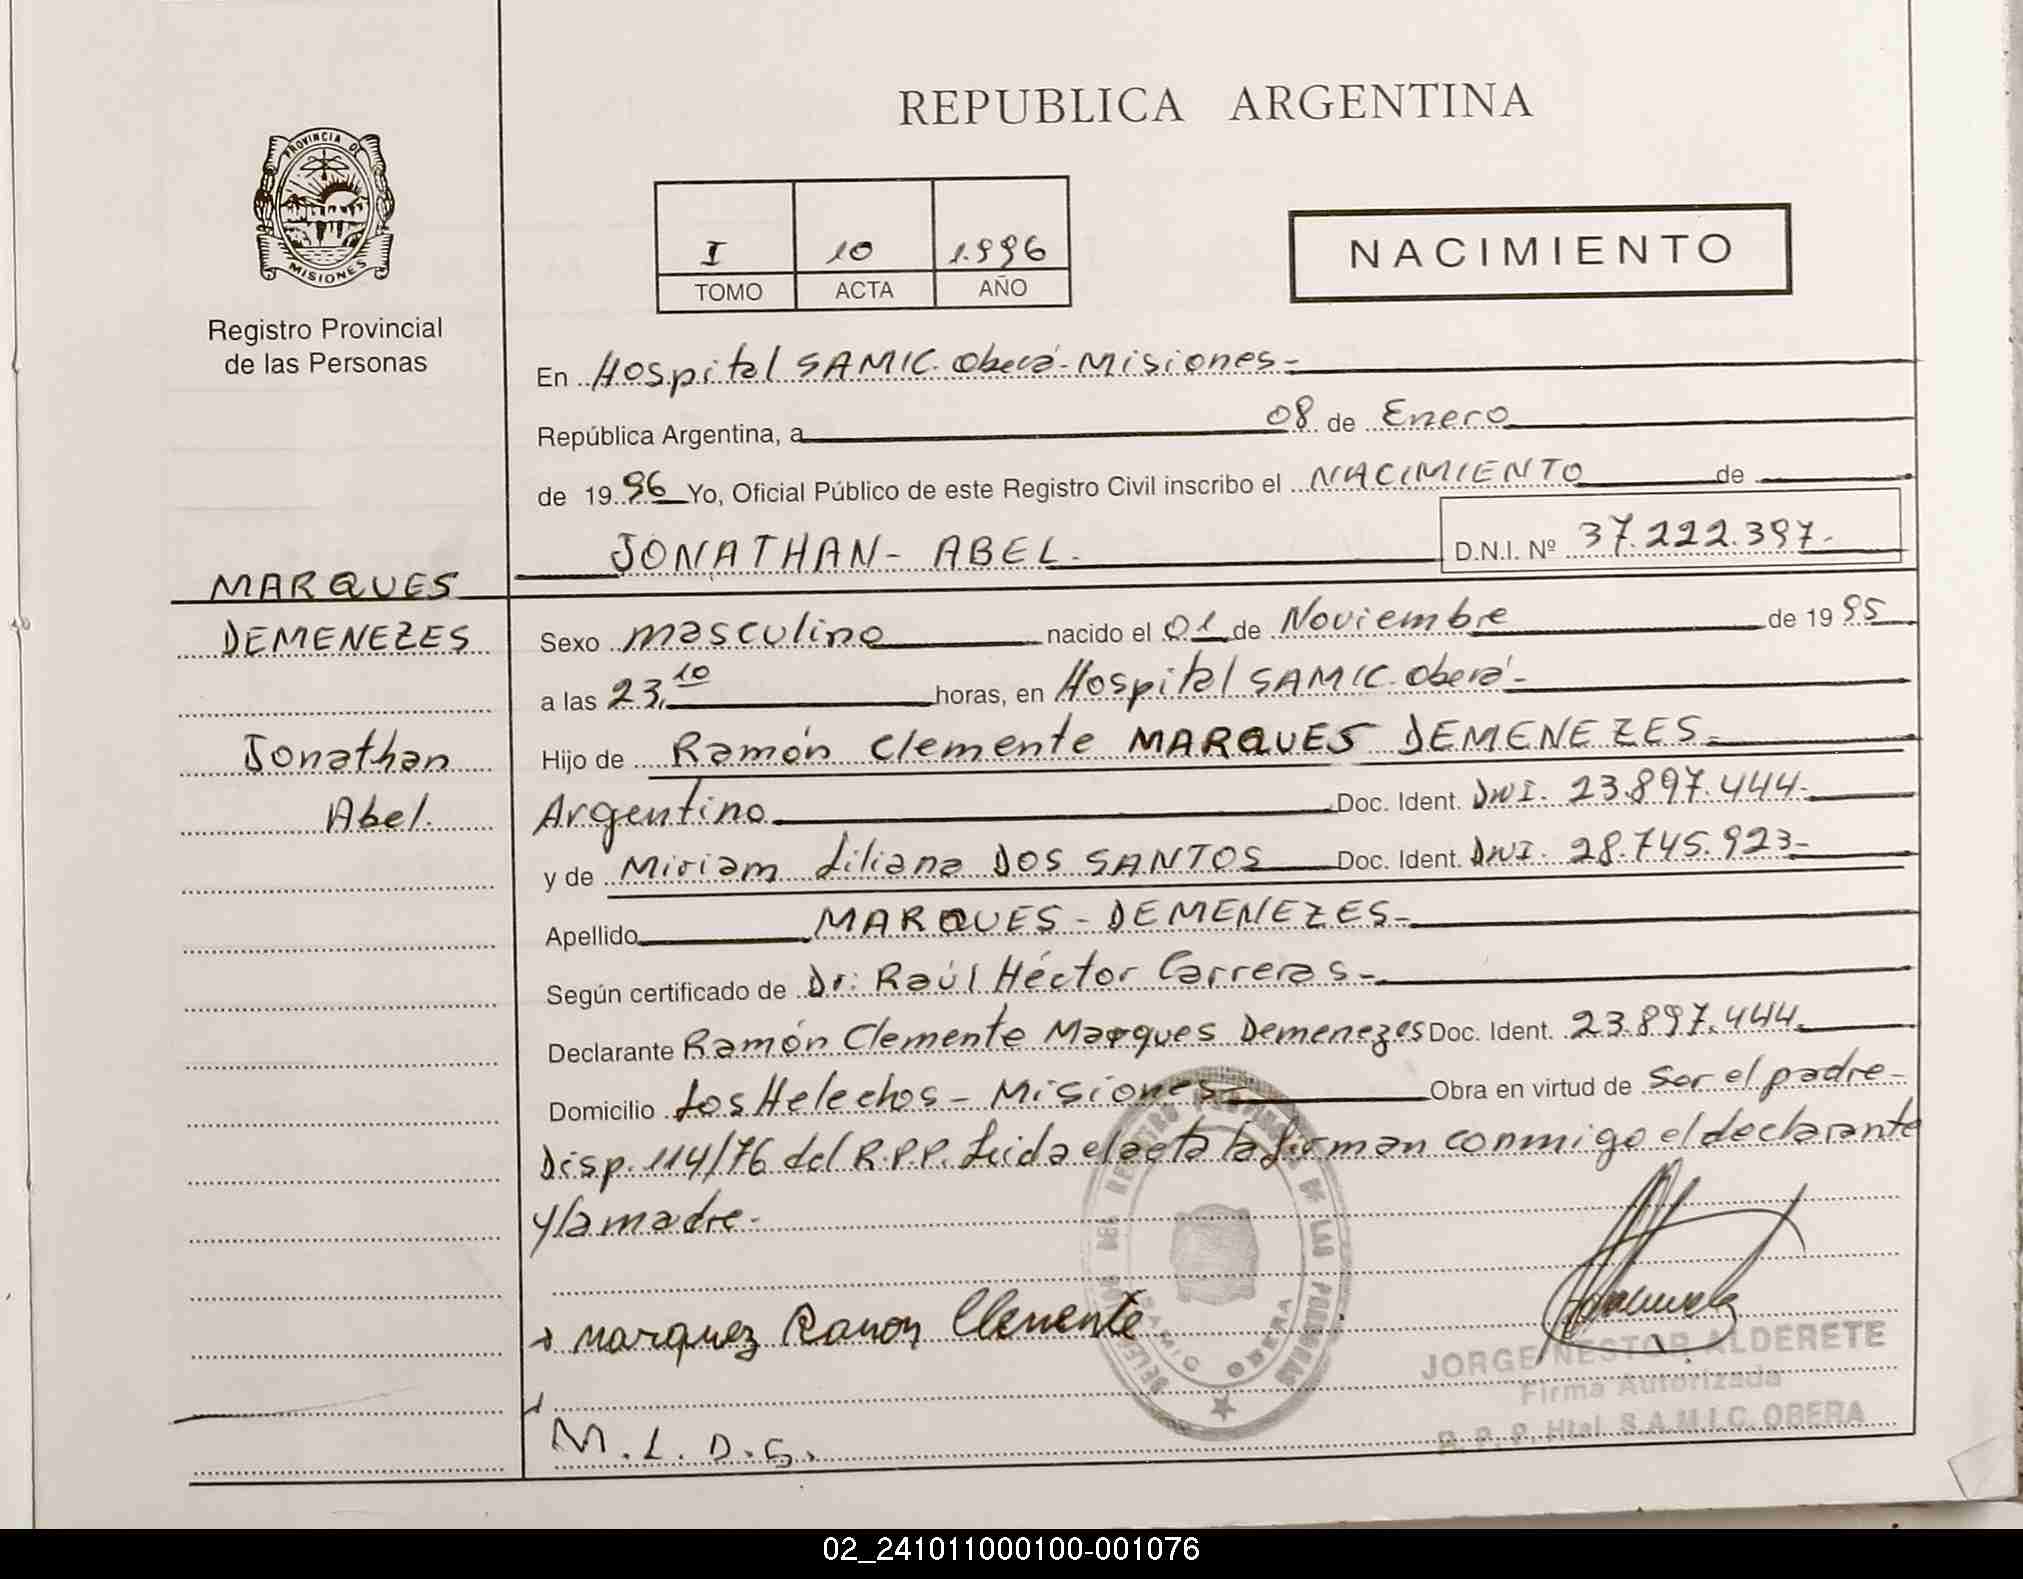 REPUBLICA ARGENTINA
PROVINCIA DE
MISIONES
Registro Provincial
de las Personas
I 10 1.996
TOMO ACTA AÑO
NACIMIENTO
En Hospital SAMIC. Oberá - Misiones -
República Argentina, a 08 de Enero
de 19 96 Yo, Oficial Público de este Registro Civil inscribo el NACIMIENTO de
JONATHAN - ABEL. D.N.I. Nº 37.222.397.-
MARQUES
DEMENEZES
Jonathan
Abel.
Sexo masculino nacido el 01 de Noviembre de 19 95
a las 23,10 horas, en Hospital SAMIC. Oberá -
Hijo de Ramón Clemente MARQUES DEMENEZES -
Argentino Doc. Ident. DNI. 23.897.444.-
y de Miriam Liliana DOS SANTOS Doc. Ident. DNI. 28.745.923 -
Apellido MARQUES - DEMENEZES -
Según certificado de Dr: Raúl Héctor Carreras -
Declarante Ramón Clemente Marques Demenezes Doc. Ident. 23.897.444.
Domicilio Los Helechos - Misiones - Obra en virtud de Ser el padre -
Disp. 114/76 del R.P.P. Leida el acta la firman conmigo el declarante
y la madre -
DELEGADO DEL REGISTRO PROVINCIAL DE LAS PERSONAS
SAMIC OBERA
marquez Ramon Clemente
JORGE NESTOR ALDERETE
Firma Autorizada
R. P. P. Htal. S.A.M.I.C. OBERA
M. L. D. S.
02_241011000100-001076